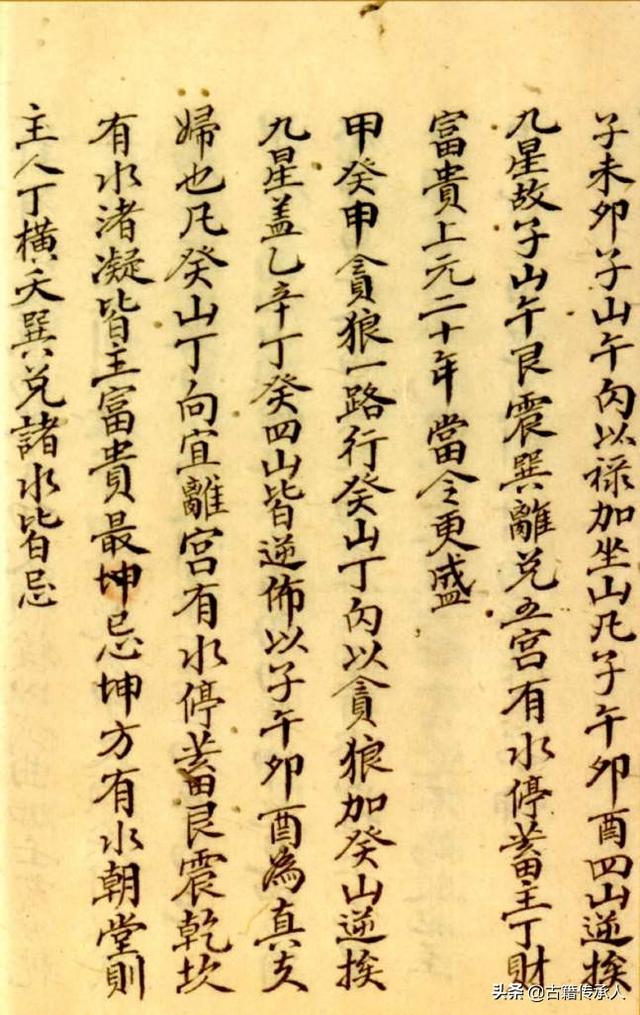 子未卯子山午內以祿加坐山凡子午卯酉四山逆挨
九星故子山午艮震巽離兌五宮有水停蓄主丁財
富貴上元二十年當令更盛
甲癸申貪狼一路行癸山丁內以貪狼加癸山逆挨
九星盖乙辛丁癸四山皆逆佈以子午卯酉為真夫
婦也凡癸山丁向宜離宮有水停蓄艮震乾坎
有水渚凝皆主富貴最坤忌坤方有水朝堂則
主人丁橫夭巽兌諸水皆忌
头条 @古籍传承人